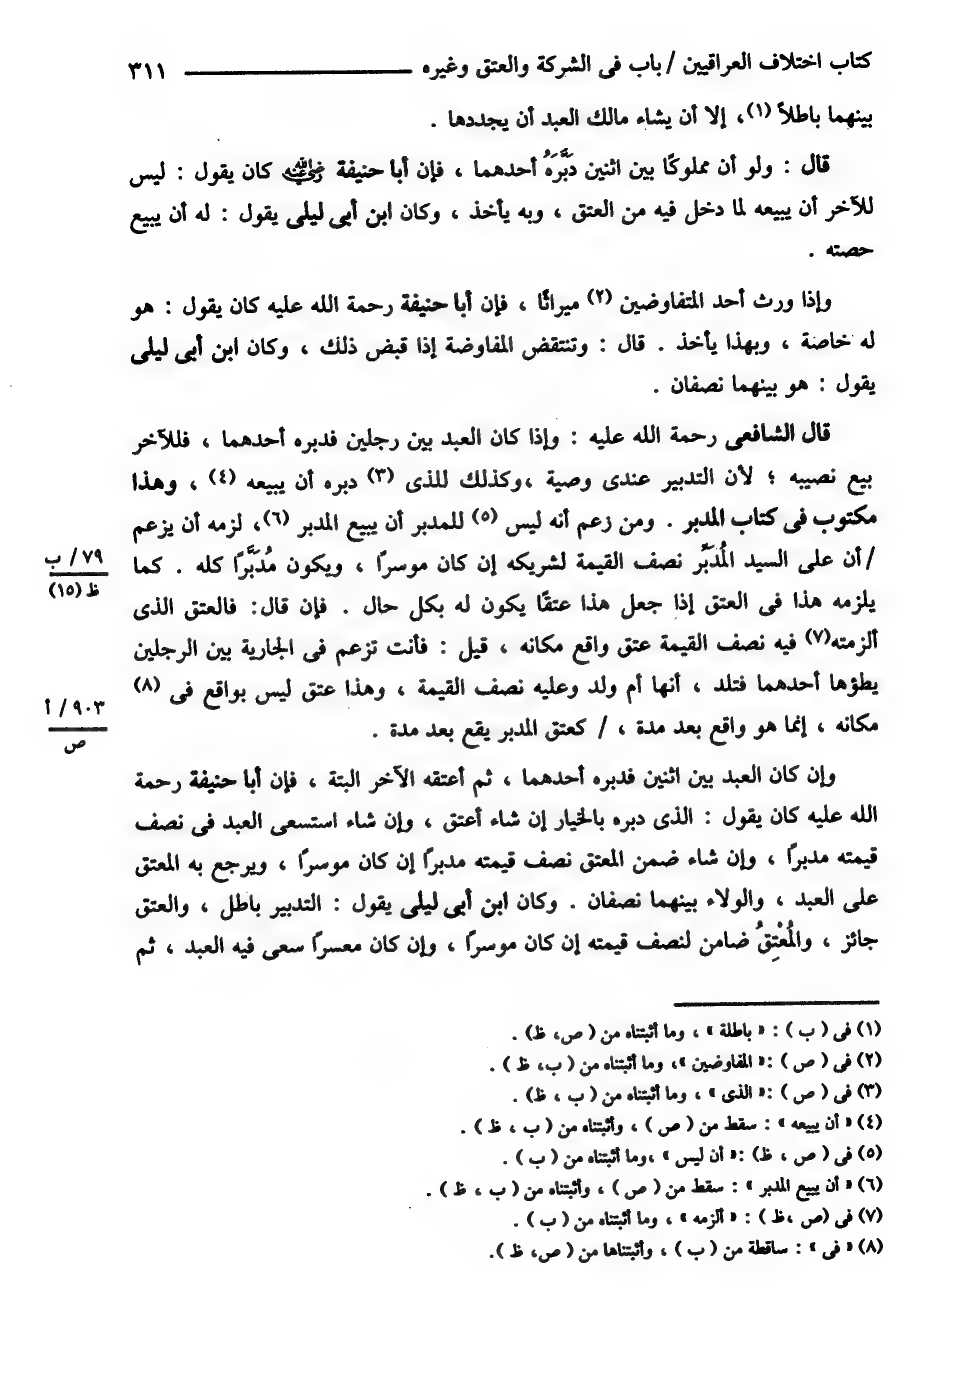 كتاب اختلاف العراقيين / باب فى الشركة والعتق وغيره ٣١١
بينهما باطلاً (١)، إلا أن يشاء مالك العبد أن يجددها .
قال : ولو أن مملوكًا بين اثنين دَبَّرَهُ أحدهما ، فإن أبا حنيفة رضي الله عنه كان يقول : ليس
للآخر أن يبيعه لما دخل فيه من العتق ، وبه يأخذ ، وكان ابن أبى ليلى يقول : له أن يبيع
حصته .
وإذا ورث أحد المتفاوضين (٢) ميراثًا ، فإن أبا حنيفة رحمة الله عليه كان يقول : هو
له خاصة ، وبهذا يأخذ . قال : وتنتقض المفاوضة إذا قبض ذلك ، وكان ابن أبى ليلى
يقول : هو بينهما نصفان .
قال الشافعى رحمة الله عليه : وإذا كان العبد بين رجلين فدبره أحدهما ، فللآخر
بيع نصيبه ؛ لأن التدبير عندى وصية ،وكذلك للذى (٣) دبره أن يبيعه (٤) ، وهذا
مكتوب فى كتاب المدبر . ومن زعم أنه ليس (٥) للمدبر أن يبيع المدبر (٦)، لزمه أن يزعم
/ أن على السيد المُدَبِّر نصف القيمة لشريكه إن كان موسرًا ، ويكون مُدَبَّرًا كله . كما
٧٩/ ب
ظ (١٥)
يلزمه هذا فى العتق إذا جعل هذا عتقًا يكون له بكل حال . فإن قال: فالعتق الذى
ألزمته(٧) فيه نصف القيمة عتق واقع مكانه ، قيل : فأنت تزعم فى الجارية بين الرجلين
يطؤها أحدهما فتلد ، أنها أم ولد وعليه نصف القيمة ، وهذا عتق ليس بواقع فى (٨)
٩٠٣/ أ
ص
مكانه ، إنما هو واقع بعد مدة ، / كعتق المدبر يقع بعد مدة .
وإن كان العبد بين اثنين فدبره أحدهما ، ثم أعتقه الآخر البتة ، فإن أبا حنيفة رحمة
الله عليه كان يقول : الذى دبره بالخيار إن شاء أعتق ، وإن شاء استسعى العبد فى نصف
قيمته مدبرًا ، وإن شاء ضمن المعتق نصف قيمته مدبرًا إن كان موسرًا ، ويرجع به المعتق
على العبد ، والولاء بينهما نصفان . وكان ابن أبى ليلى يقول : التدبير باطل ، والعتق
جائز ، والمُعْتِقُ ضامن لنصف قيمته إن كان موسرًا ، وإن كان معسرًا سعى فيه العبد ، ثم
(١) فى ( ب ) : « باطلة » ، وما أثبتناه من ( ص، ظ) .
(٢) فى ( ص ) :« المفاوضين »، وما أثبتناه من ( ب، ظ ) .
(٣) فى ( ص ) :« الذى » ، وما أثبتناه من ( ب ، ظ) .
(٤) « أن يبيعه » : سقط من ( ص ) ، وأثبتناه من ( ب ، ظ ) .
(٥) فى ( ص ، ظ) :« أن ليس » ،وما أثبتناه من ( ب ) .
(٦) « أن يبيع المدبر » : سقط من ( ص ) ، وأثبتناه من ( ب ، ظ ) .
(٧) فى (ص ،ظ ) : « ألزمه » ، وما أثبتناه من ( ب ) .
(٨) « فى » : ساقطة من ( ب ) ، وأثبتناها من ( ص، ظ ).